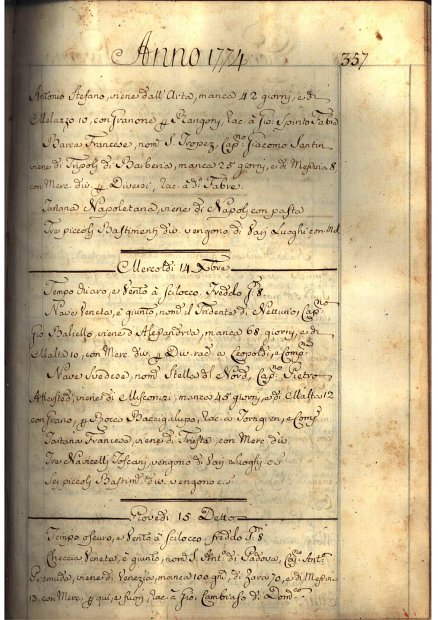 Anno 1774
357
Antonio Stefano, viene dall'Arta, manca 42 giorni, e di
Melazzo 10, con Granone p Rangoni, Rac. à Gio: Spirito Fabre
Barca Francese, nom S. Tropez, Cap.no Giacomo Santin
viene di Tripoli di Barberia, manca 25 giorni, e di Messina 8
con Merc. div. p Diversi, Rac. à d.o Fabre.
Tartana Napoletana, viene di Napoli con pasta
Tre piccoli Bastimenti div. vengono di Varj Luoghi con
Mercoldì 14 Xbre
Tempo chiaro, e Vento à Scilocco. Freddo g.i 8.
Nave Veneta, è giunto, nom.a il Tridente di Nettuno, Cap.no
Gio Balielo, viene d'Alessandria, manca 68 giorni, e di
Malta 10, con Merc. div. p Div. rac. à Leopoldi, e Comp.
Nave Svedese, nom. Stella del Nord, Cap.no Pietro
viene di manca 45 giorni, e di Malta 12
con Grano, p Rocco Baccigalupo, Rac. à e Comp.
Tartana Francese, viene di Trieste, con Merc. div.
Tre Navicelli Toscani, vengono di Varj Luoghi c.s.
Sei piccoli Bastim.ti div. vengono c.s.
Giovedì 15 Detto
Tempo oscuro, e Vento à Scilocco. freddo g.i 8.
Checcia Veneta, è giunto, nom. S. Ant.o di Padova, Cap. Ant.o
viene di Venezia, manca 100 gio., di Zara 70, e di Messina
13, con Merc. p qui, e fuori, Rac. à Gio: Cambiaso di Dom.co